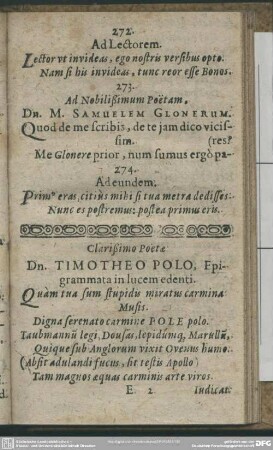 272.
Ad Lectorem.
Lector vt invideas, ego nostris versibus opto.
Nam si his invideas, tunc reor esse Bonos.
273.
Ad Nobilißimum Poëtam,
DN. M. SAMUELEM GLONERUM.
Quod de me scribis, de te jam dico vicis-
sim. (res?
Me Glonere prior, num sumus ergò pa-
274.
Ad eundem.
Primº eras, citiùs mihi si tua metra dedisses:
Nunc es postremus: postea primus eris.
Clarißimo Poetæ
Dn. TIMOTHEO POLO, Epi-
grammata in lucem edenti.
Quàm tua sum stupidu miratus carmina
Musis.
Digna serenato carmine POLE polo.
Taubmannũ legi, Dousas, lepidũmq́, Marullũ,
Quique sub Anglorum vixit Ovenus humo.
(Absit adulandi fucus, sit testis Apollo)
Tam magnos æquas carminis arte viros.
E 2 Iudicat.